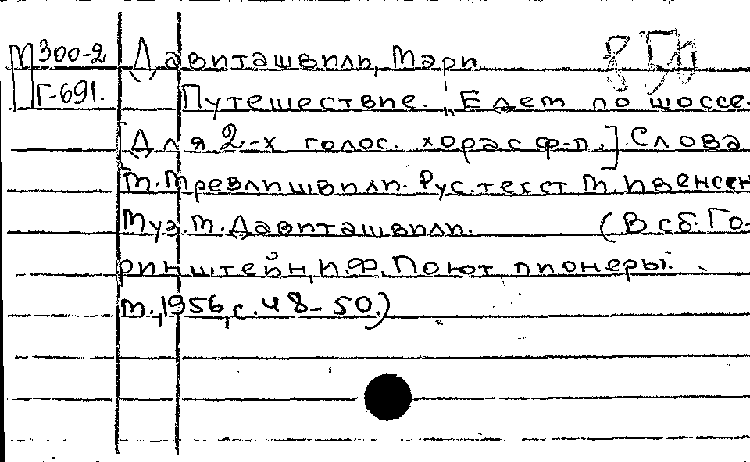 М300-2 Давиташвили, Мари 8 50
Г-691. Путешествие. „Едем по шоссе.
[Для 2-х голос. хора с ф-п.] Слова
М. Мревлишвили. Рус. текст М. Ивенсен
Муз. М. Давиташвили. (В сб. Го-
ринштейн, И. Ф. Поют пионеры.
М., 1956, с. 48-50.)